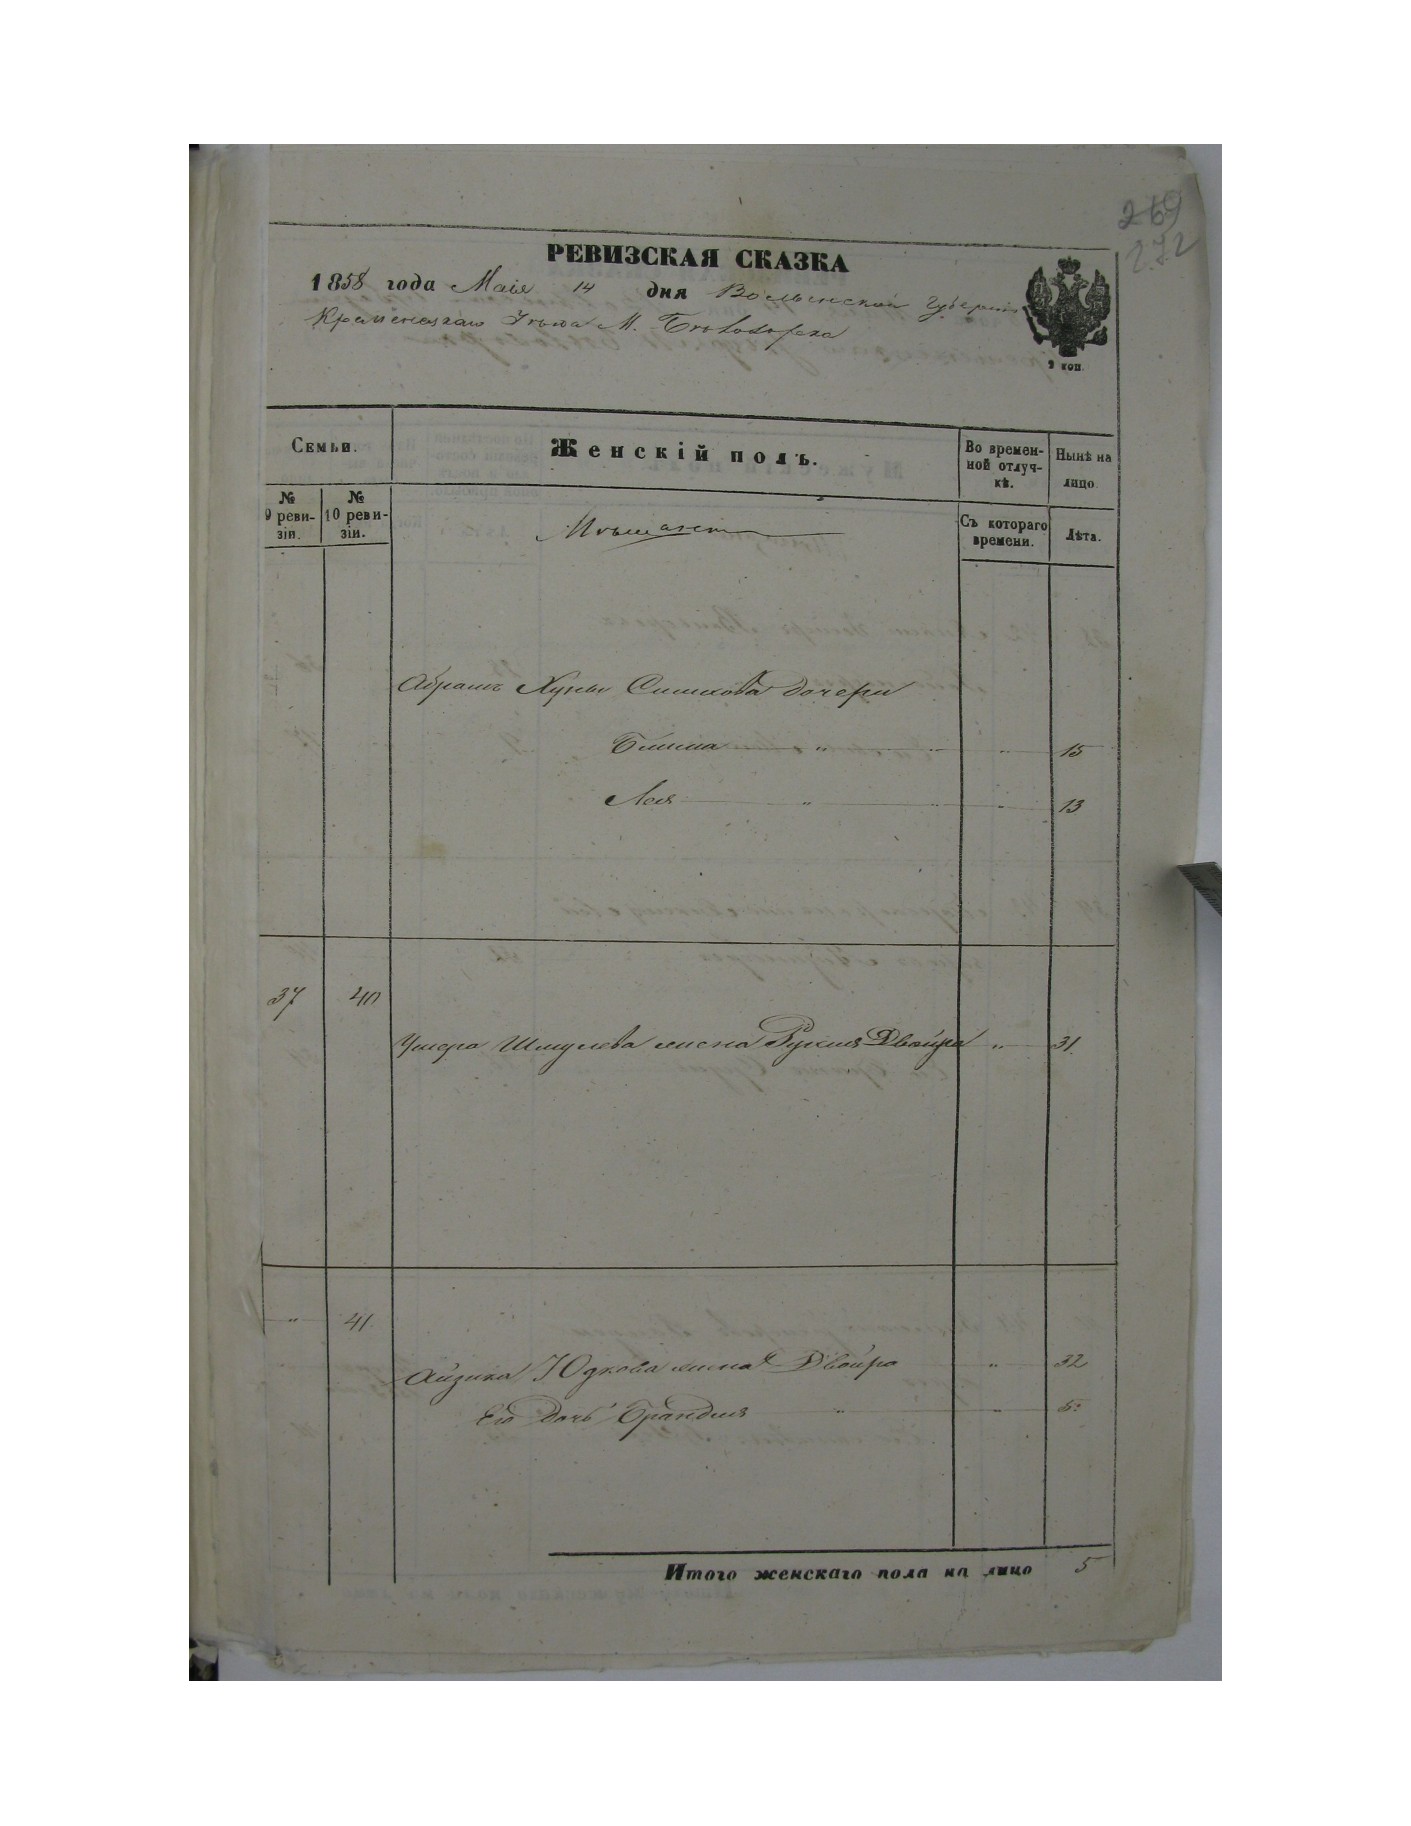 269
272
РЕВИЗСКАЯ СКАЗКА
1858 года Маія 14 дня Волынской Губерніи
Кременецкаго Уѣзда М. Бѣлозорка
2 коп.
Семьи.
Женскій полъ.
Во времен-
ной отлуч-
кѣ.
Нынѣ на
лицо.
№
9 реви-
зіи.
№
10 реви-
зіи.
Мѣщане
Съ котораго
времени.
Лѣта.
Абрамъ Хуны Симхова дочери
Блима " " " 15
Лея " " " 13
37 40
Ушера Шмулева жена Рухля Двойра " 31
" 41
Айзика Юдкова жена Двойра " 32
Его дочь Брандля " " " 5
Итого женскаго пола на лицо 5